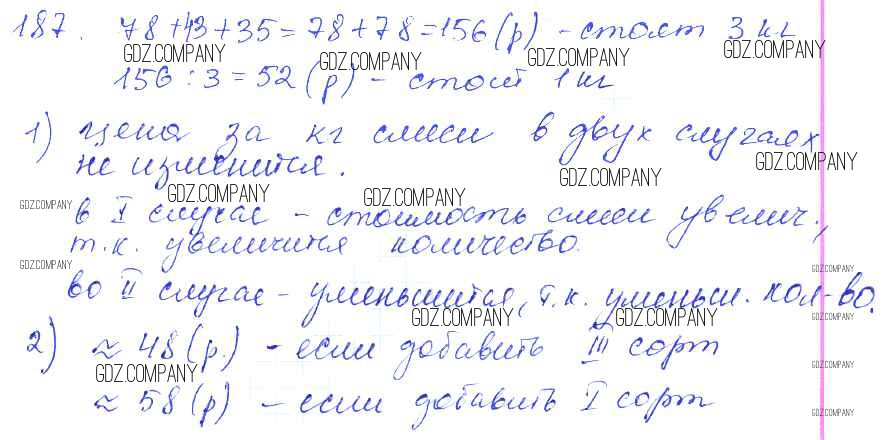 187. 78 + 43 + 35 = 78 + 78 = 156 (р) - стоят 3 кг
GDZ.COMPANY GDZ.COMPANY GDZ.COMPANY GDZ.COMPANY
156 : 3 = 52 (р) - стоит 1 кг
1) цена за кг смеси в двух случаях
не изменится.
GDZ.COMPANY GDZ.COMPANY
GDZ.COMPANY GDZ.COMPANY GDZ.COMPANY
в I случае - стоимость смеси увелич.,
т.к. увеличится количество.
GDZ.COMPANY GDZ.COMPANY
во II случае - уменьшится, т.к. уменьш. кол-во.
GDZ.COMPANY GDZ.COMPANY GDZ.COMPANY
2) ≈ 48 (р.) - если добавить III сорт
GDZ.COMPANY GDZ.COMPANY
≈ 58 (р) - если добавить I сорт
GDZ.COMPANY